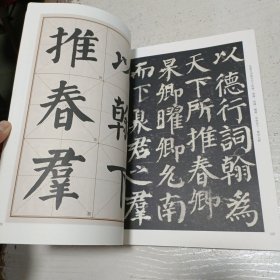 以德行詞翰為
天下所推春卿
杲卿曜卿允南
而下臮君之羣
以翰下
推春羣